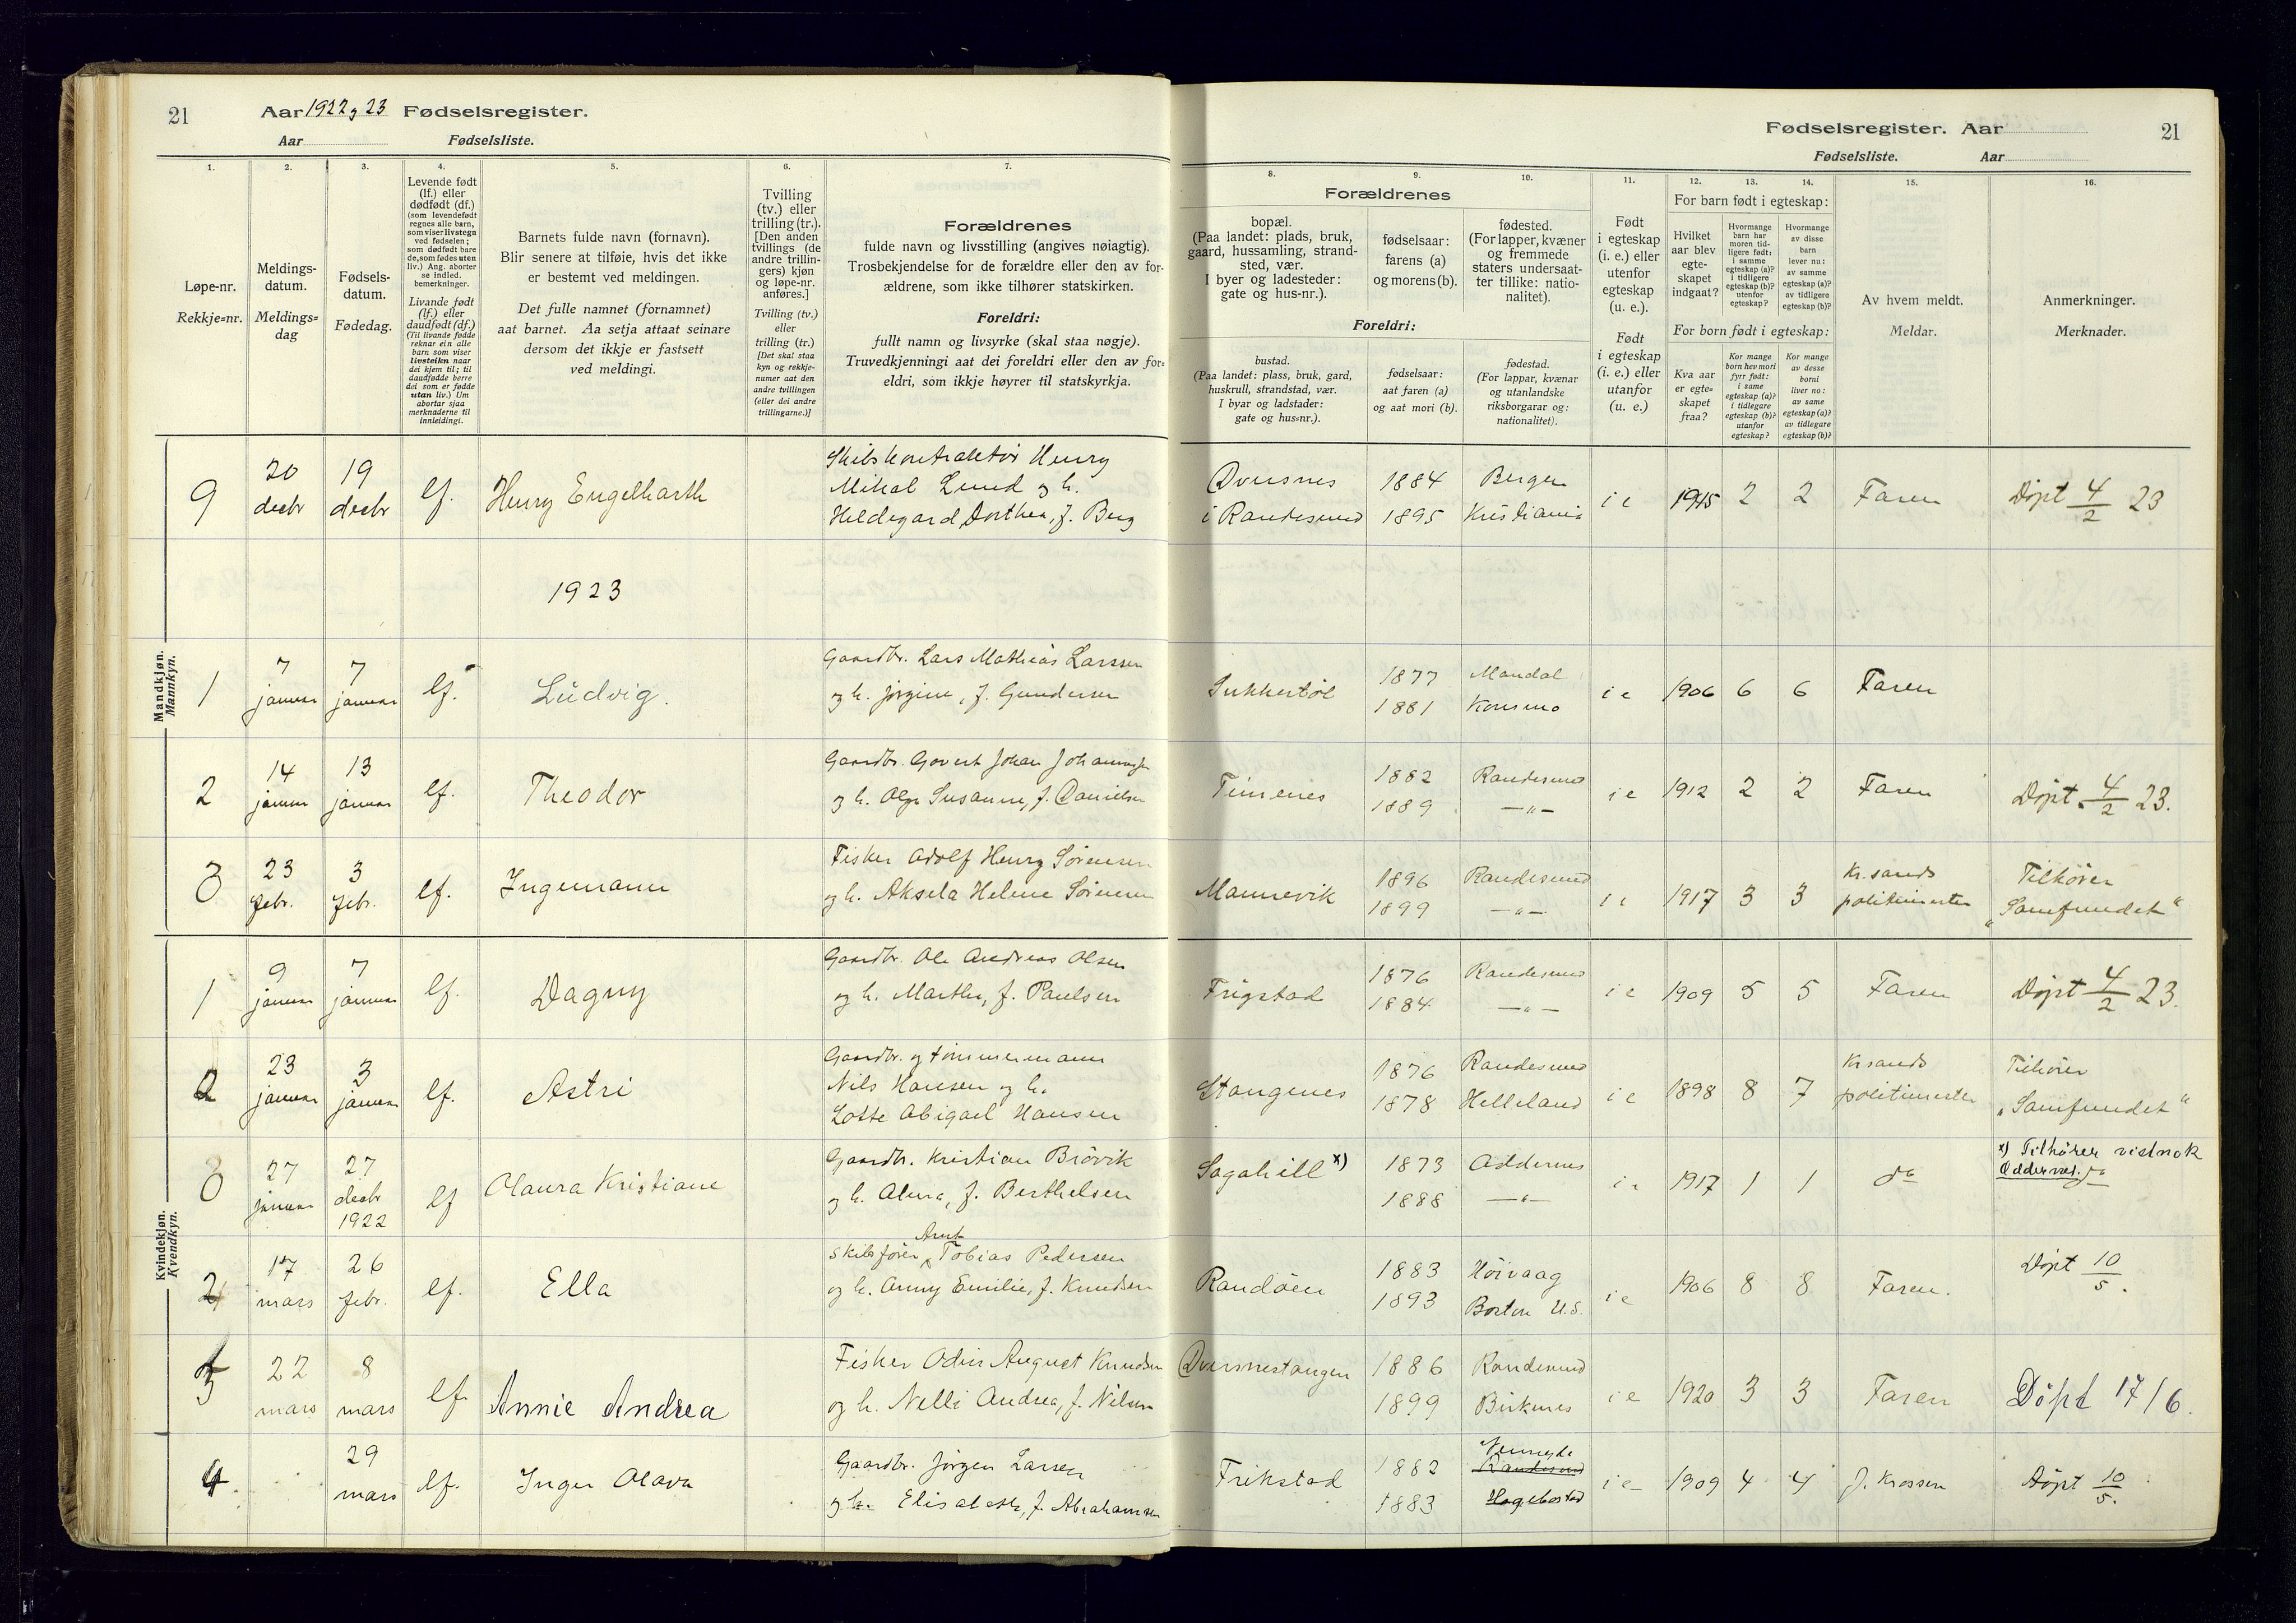 21
Aar 1922 og 23 Fødselsregister.
Aar Fødselsliste.
Fødselsregister. Aar 21
Fødselsliste. Aar
1. 2. 3. 4. 5. 6. 7.
Løpe-nr.
Rekkje=nr.
Meldings-
datum.
Meldings=
dag
Fødsels-
datum.
Fødedag.
Levende født
(lf.) eller
dødfødt (df.)
(som levendefødt
regnes alle barn,
som viser livstegn
ved fødselen;
som dødfødt bare
de, som fødes uten
liv.) Ang. aborter
se indled.
bemerkninger.
Livande født
(lf.) eller
daudfødt (df.)
(Til livande fødde
reknar ein alle
barn som viser
livsteikn naar
dei kjem til; til
daudfødde berre
dei som er fødde
utan liv.) Um
abortar sjaa
merknaderne til
innleidingi.
Barnets fulde navn (fornavn).
Blir senere at tilføie, hvis det ikke
er bestemt ved meldingen.
Det fulle namnet (fornamnet)
aat barnet. Aa setja attaat seinare
dersom det ikkje er fastsett
ved meldingi.
Tvilling
(tv.) eller
trilling (tr.).
[Den anden
tvillings (de
andre trillin-
gers) kjøn
og løpe-nr.
anføres.]
Tvilling (tv.)
eller
trilling (tr.)
[Det skal staa
kyn og rekkje-
numer aat den
andre tvillingen
(eller dei andre
trillingarne.)]
Forældrenes
fulde navn og livsstilling (angives nøiagtig).
Trosbekjendelse for de forældre eller den av for-
ældrene, som ikke tilhører statskirken.
Foreldri:
fullt namn og livsyrke (skal staa nøgje).
Truvedkjenningi aat dei foreldri eller den av for=
eldri, som ikkje høyrer til statskyrkja.
8. 9. 10. 11. 12. 13. 14. 15. 16.
Forældrenes
bopæl.
(Paa landet: plads, bruk,
gaard, hussamling, strand-
sted, vær.
I byer og ladesteder:
gate og hus-nr.).
fødselsaar:
farens (a)
og morens (b).
fødested.
(For lapper, kvæner
og fremmede
staters undersaat-
ter tillike: natio-
nalitet).
Foreldri:
bustad.
(Paa landet: plass, bruk, gard,
huskrull, strandstad, vær.
I byar og ladstader:
gate og hus=nr.).
fødselsaar:
aat faren (a)
og aat mori (b).
fødestad.
(For lappar, kvænar
og utanlandske
riksborgarar og:
nationalitet).
Født
i egteskap
(i. e.) eller
utenfor
egteskap
(u. e.).
Født
i egteskap
(i. e.) eller
utanfor
(u. e.)
For barn født i egteskap:
Hvilket
aar blev
egte-
skapet
indgaat?
Hvormange
barn har
moren tid-
ligere født:
i samme
egteskap (a)?
i tidligere
egteskap (b)?
utenfor
egteskap?
Hvormange
av disse
barn
lever nu:
av samme
egteskap (a)?
av tidligere
egteskap (b)?
For born født i egteskap:
Kva aar
er egte=
skapet
fraa?
Kor mange
born hev mori
fyrr født:
i same
egteskap (a)?
i tidlegare
egteskap (b)?
utanfor
egteskap?
Kor mange
av desse
borni
liver no:
av same
egteskap (a)?
av tidlegare
egteskap (b)?
Av hvem meldt.
Meldar.
Anmerkninger.
Merknader.
Mandkjøn.
Mannkyn.
9 20 decbr 19 decbr lf. Henry Engelharth
Skibskontraktør Henry
Mikal Lund og h.
Hildegard Dorthea, f. Berg
Dversnes
i Randesund
1884 Bergen
1895 Kristiania
i e 1915 2 2 Faren Døpt 4/2 23
1923
1 7 januar 7 januar lf. Ludvig.
Gaardbr. Lars Mathias Larssen
og h. Jørgine, f. Gundersen
Sukkertøl
1877 Mandal
1881 Konsmo
i e 1906 6 6 Faren
2 14 januar 13 januar lf. Theodor
Gaardbr. Govert Johan Johannesen
og h. Olga Susanne, f. Danielsen
Timenes
1882 Randesund
1889 —„—
i e 1912 2 2 Faren Døpt. 4/2 23.
3 23 febr. 3 febr. lf. Ingemann
Fisker Adolf Henry Sørensen
og h. Aksela Helene Sørensen
Mannevik
1896 Randesund
1899 —„—
i e 1917 3 3
Kr.sands
politimester
Tilhører
„Samfundet“
Kvindekjøn.
Kvendkyn.
1 9 januar 7 januar lf. Dagny
Gaardbr. Ole Andreas Olsen
og h. Marthe, f. Paulsen
Frigstad
1876 Randesund
1884 —„—
i e 1909 5 5 Faren Døpt 4/2 23.
2 23 januar 3 januar lf. Astri
Gaardbr. og tømmermann
Nils Hansen og h.
Lotte Abigael Hansen
Stangenes
1876 Randesund
1878 Helleland
i e 1898 8 7
Kr.sands
politimester
Tilhører
„Samfundet“
3 27 januar 27 decbr 1922 lf Olaura Kristiane
Gaardbr. Kristian Brøvik
og h. Alma, f. Berthelsen
Sagahill x)
1873 Oddernes
1888 —„—
i e 1917 1 1 do
x) Tilhører vistnok
Oddernes. do
2 17 mars 26 febr. lf. Ella
Arnt
Skibsfører Tobias Pedersen
og h. Anny Emilie, f. Knudsen
Randøen
1883 Høivaag
1893 Boston U.S.
i e 1906 8 8 Faren. Døpt 10/5.
3 22 mars 8 mars lf. Annie Andrea
Fisker Odin August Knudsen
og h. Nelli Andrea, f. Nilsen
Dversnestangen
1886 Randesund
1899 Birkenes
i e 1920 3 3 Faren Döpt 17/6.
4 29 mars lf. Inger Olava
Gaardbr. Jørgen Larsen
og h. Elisabeth, f. Abrahamsen
Frikstad
Vennesla
1882 Randesund
1883 Hægebostad
i e 1909 4 4 J. Krossen Døpt 10/5.